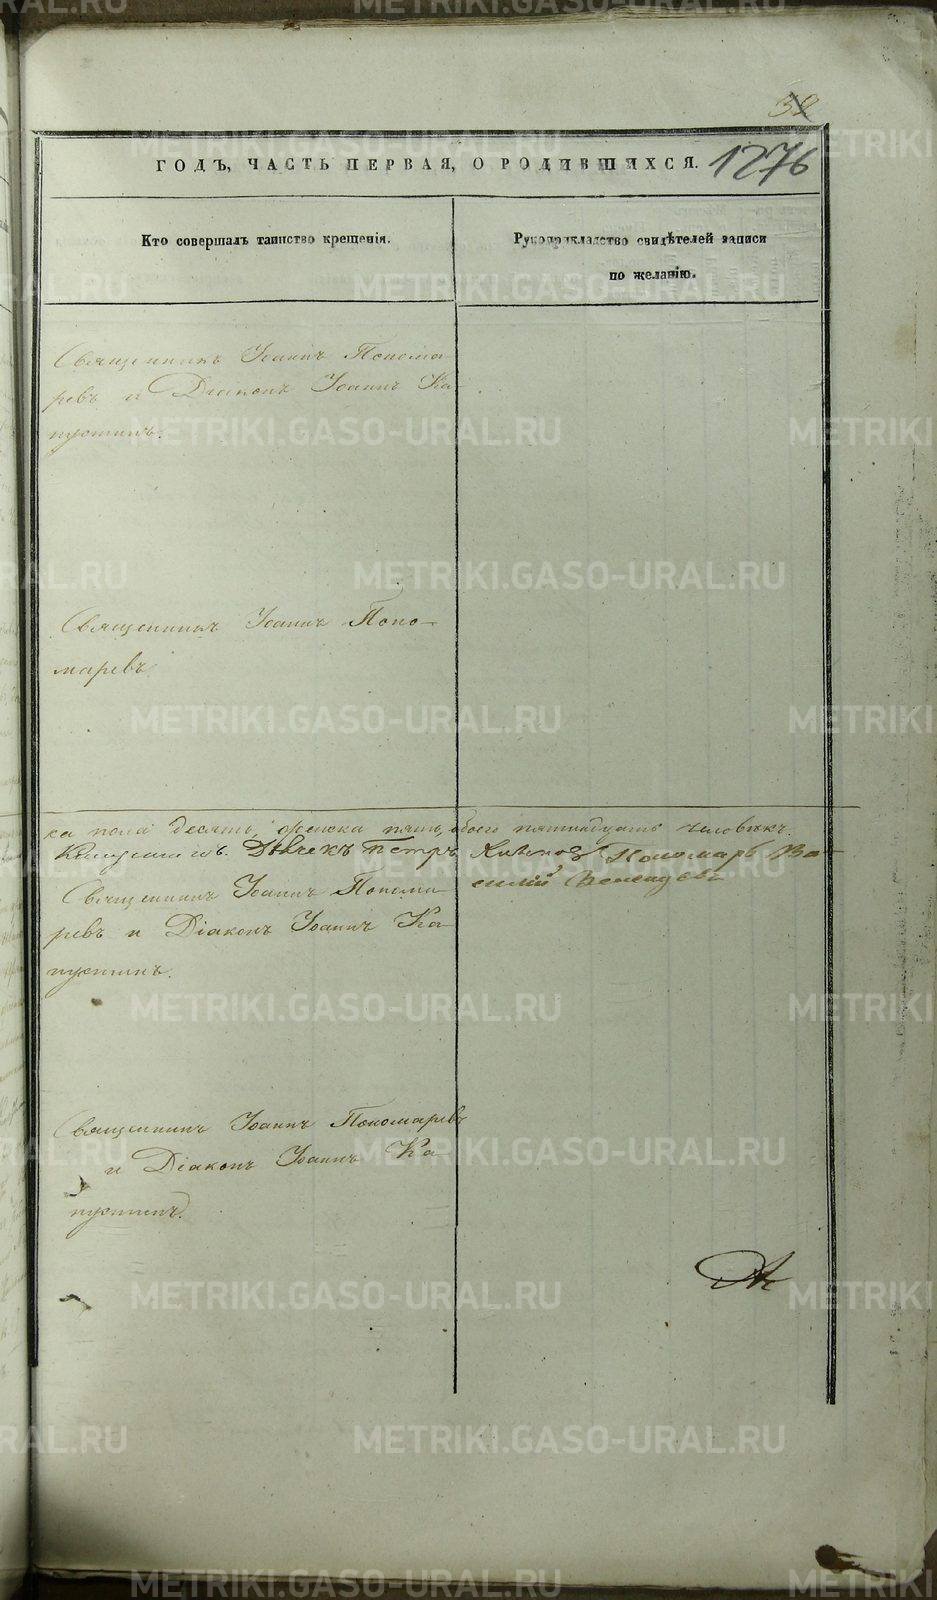 32
1276
ГОДЪ, ЧАСТЬ ПЕРВАЯ, О РОДИВШИХСЯ.
Кто совершалъ таинство крещенія.
Рукоприкладство свидѣтелей записи
по желанію.
Священникъ Іоаннъ Понома
ревъ и Діаконъ Іоаннъ Ка-
пустинъ.
Священникъ Іоаннъ Поно-
маревъ
ка пола десять, женска пять, обоего пятнадцать человѣкъ.
Капустинъ. Дьячекъ Петръ Пономарь Ва-
силій
Священникъ Іоаннъ Понома-
ревъ и Діаконъ Іоаннъ Ка-
пустинъ.
Священникъ Іоаннъ Пономаревъ
и Діаконъ Іоаннъ Ка-
пустинъ.
METRIKI.GASO-URAL.RU